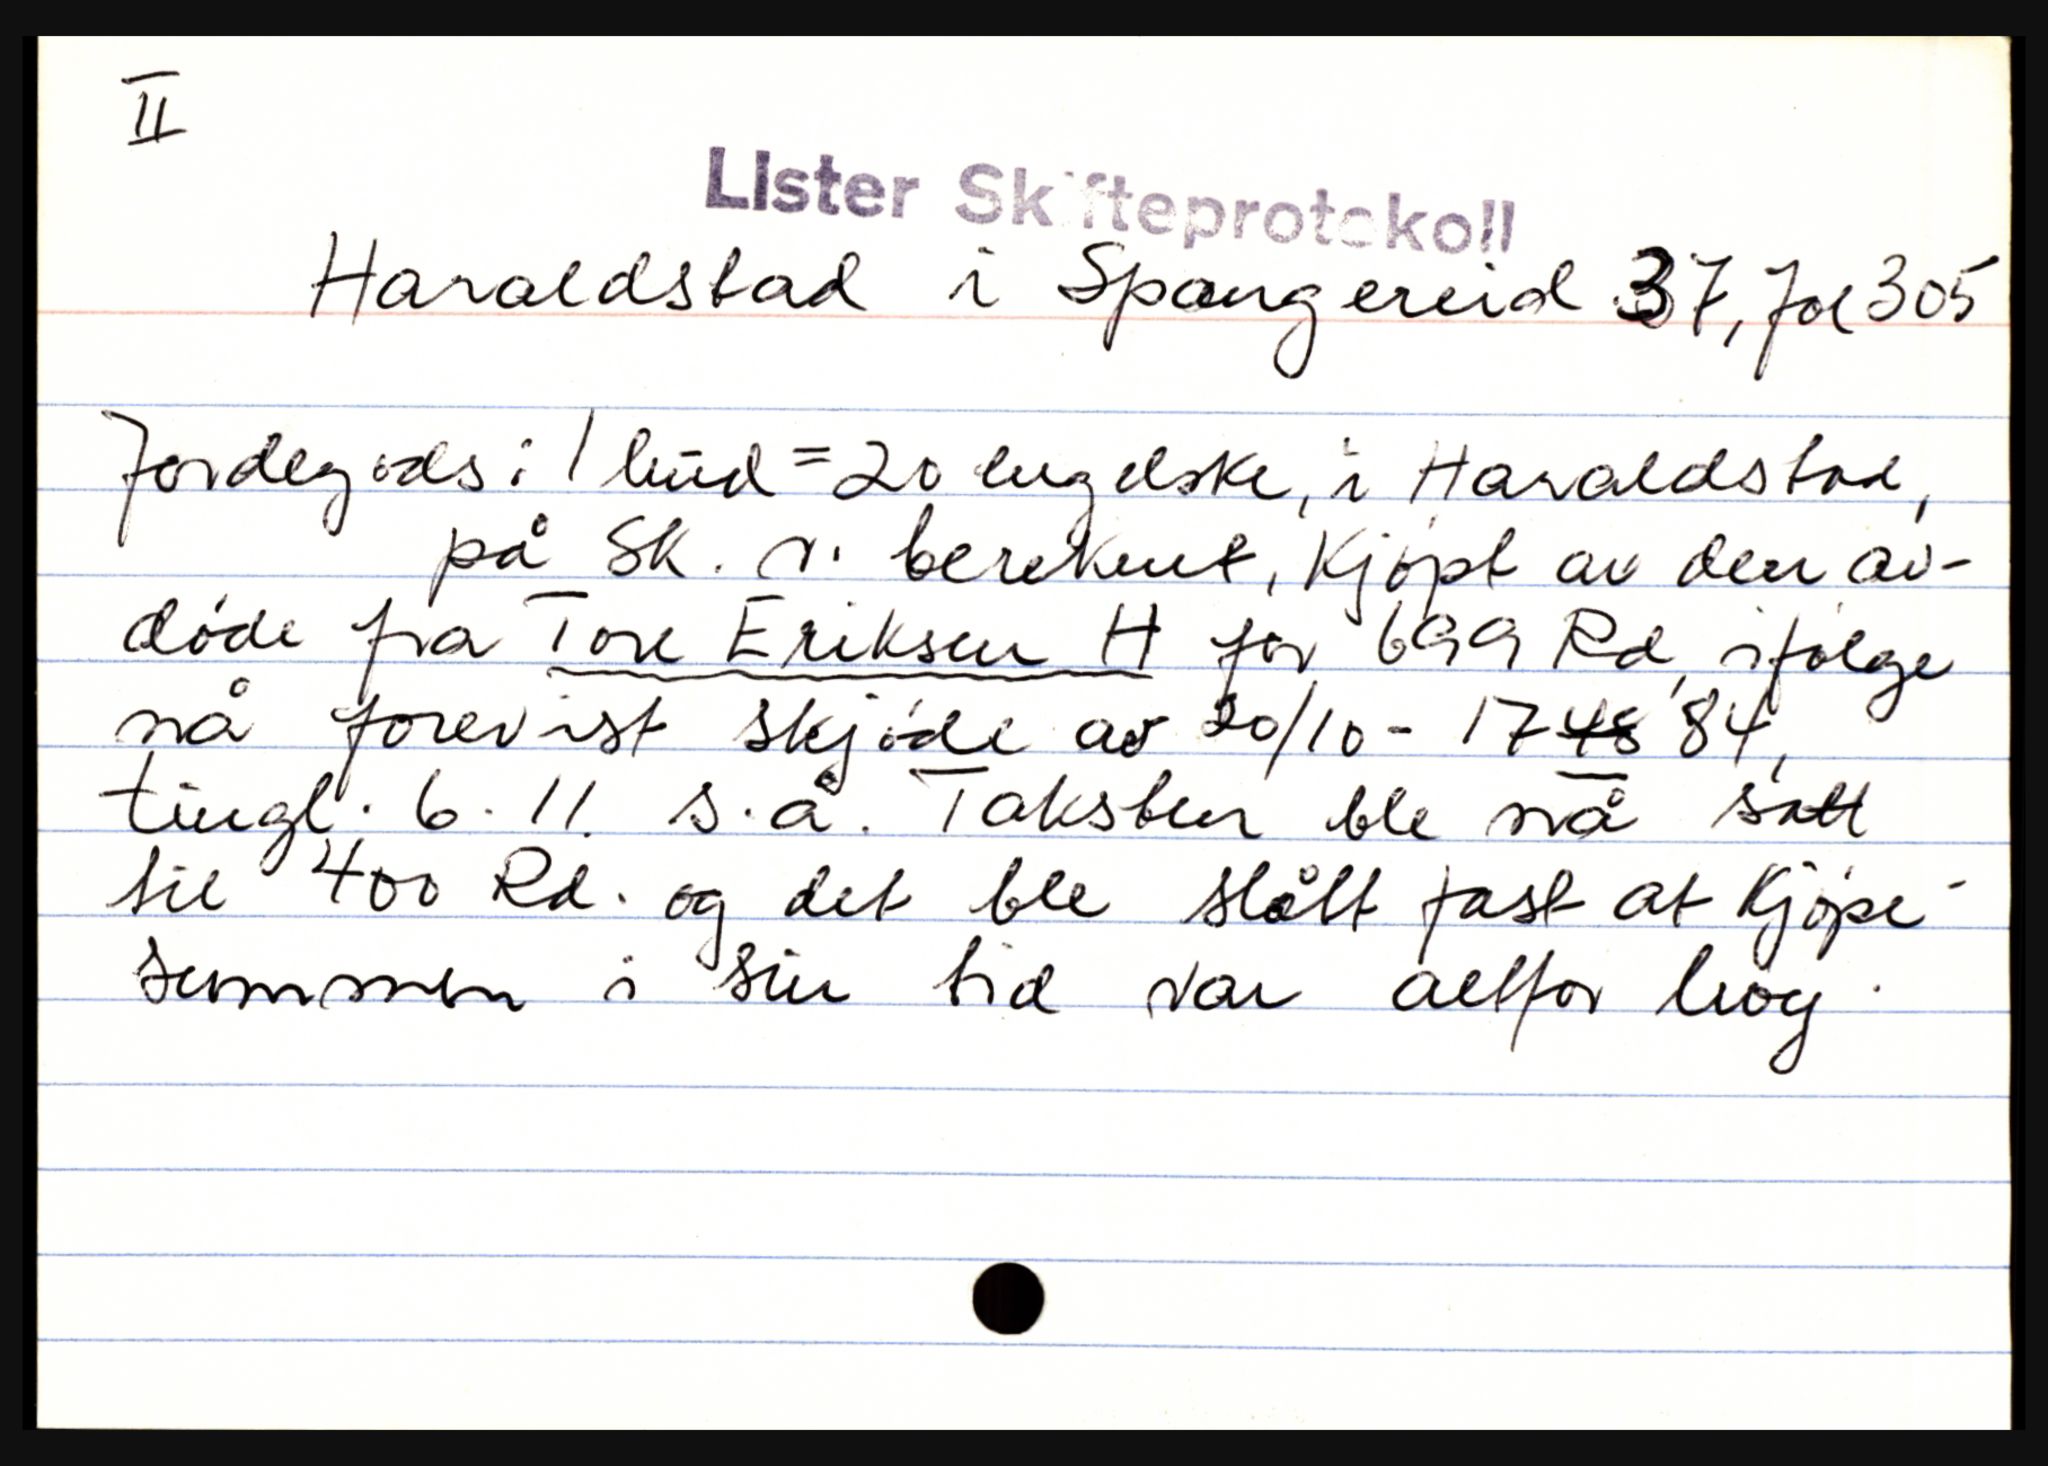 II
Lister Skifteprotokoll
Haraldstad i Spangereid 37, fol 305
Jordegods: 1 hud = 20 engelske, i Haraldstad,
på Sk. n. berekent, kjøpt av den av-
døde fra Tore Eriksen H for 699 Rd, ifølge
nå forevist skjøde av 20/10 - 1748 84,
tingl. 6. 11. s. å. Taksten ble nå satt
til 400 Rd. og det ble slått fast at kjøpe-
summen i sin tid var altfor høg.